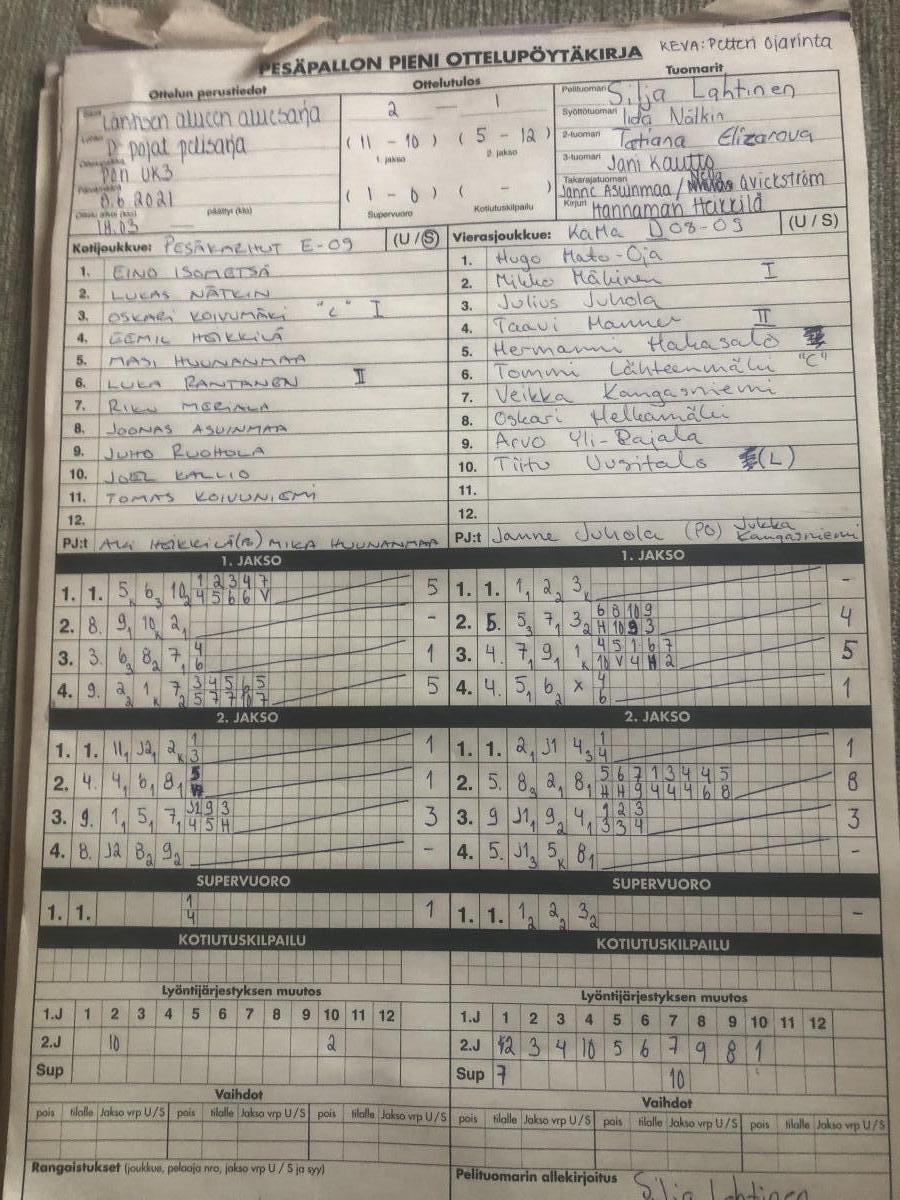 KEVA: Petteri Ojarinta
PESÄPALLON PIENI OTTELUPÖYTÄKIRJA
Ottelun perustiedot
Ottelutulos
Tuomarit
Länsisen alueen aluesarja
D pojat pelisarja
Pori UK3
8.6.2021
18.03 päättyi (klo)
2 — 1
( 11 - 10 ) ( 5 - 12 )
1. jakso 2. jakso
( 1 - 0 ) ( - )
Supervuoro Kotiutuskilpailu
Pelituomari Silja Lahtinen
Syöttötuomari Iida Nätkin
2-tuomari Tatiana Elizarova
3-tuomari Jani Kautto
Takarajatuomari Janne Asuinmaa / Nella Qvickström
Kirjuri Hannamari Heikkilä
Kotijoukkue: PESÄKARHUT E-09 (U / S)
1. EINO ISOMETSÄ
2. LUKAS NÄTKIN
3. OSKARI KOIVUMÄKI "C" I
4. EEMIL HEIKKILÄ
5. MASI HUUNANMAA
6. LUKA RANTANEN II
7. RIKU MERIALA
8. JOONAS ASUINMAA
9. JUHO RUOHOLA
10. JOEL KALLIO
11. TOMAS KOIVUNIEMI
12.
PJ:t AKI HEIKKILÄ (PO) MIKA HUUNANMAA
Vierasjoukkue: KaMa D08-09 (U / S)
1. Hugo Mato-Oja
2. Mikko Mäkinen I
3. Julius Juhola
4. Taavi Manner II
5. Hermanni Hakasalo
6. Tommi Lähteenmäki "C"
7. Veikka Kangasniemi
8. Oskari Helkamäki
9. Arvo Yli-Rajala
10. Tiitu Uusitalo (L)
11.
12.
PJ:t Janne Juhola (PO) Jukka Kangasniemi
1. JAKSO
1. 1. 5k 63 102 1 2 3 4 7 5
4 5 6 6 V
2. 8. 91 10k 21 -
3. 3. 63 82 71 4 1
6
4. 9. 22 1k 72 3 4 5 6 5 5
5 7 7 10 7
1. JAKSO
1. 1. 11 22 3k -
2. 5. 53 71 32 6 8 10 9 4
H 10 9 3
3. 4. 71 91 1k 4 5 1 6 7 5
10 V 4 H 2
4. 4. 51 62 x 4 1
6
2. JAKSO
1. 1. 111 J21 2k 1 1
3
2. 4. 41 61 81 5 1
3. 9. 11 51 71 J1 9 3 3
4 5 H
4. 8. J2 82 92 -
2. JAKSO
1. 1. 21 J1 43 1 1
4
2. 5. 83 21 81 5 6 7 1 3 4 4 5 8
H H 9 4 4 4 6 8
3. 9 J11 92 41 1 2 3 3
3 3 4
4. 5. J13 5k 81 -
SUPERVUORO
1. 1. 1 1
4
SUPERVUORO
1. 1. 12 22 32 -
KOTIUTUSKILPAILU
KOTIUTUSKILPAILU
Lyöntijärjestyksen muutos
1.J 1 2 3 4 5 6 7 8 9 10 11 12
2.J 10 2
Sup
Lyöntijärjestyksen muutos
1.J 1 2 3 4 5 6 7 8 9 10 11 12
2.J 2 3 4 10 5 6 7 9 8 1
Sup 7 10
Vaihdot
pois tilalle Jakso vrp U / S pois tilalle Jakso vrp U / S pois tilalle Jakso vrp U / S
Vaihdot
pois tilalle Jakso vrp U / S pois tilalle Jakso vrp U / S pois tilalle Jakso vrp U / S
Rangaistukset (joukkue, pelaaja nro, jakso vrp U / S ja syy)
Pelituomarin allekirjoitus Silja Lahtinen